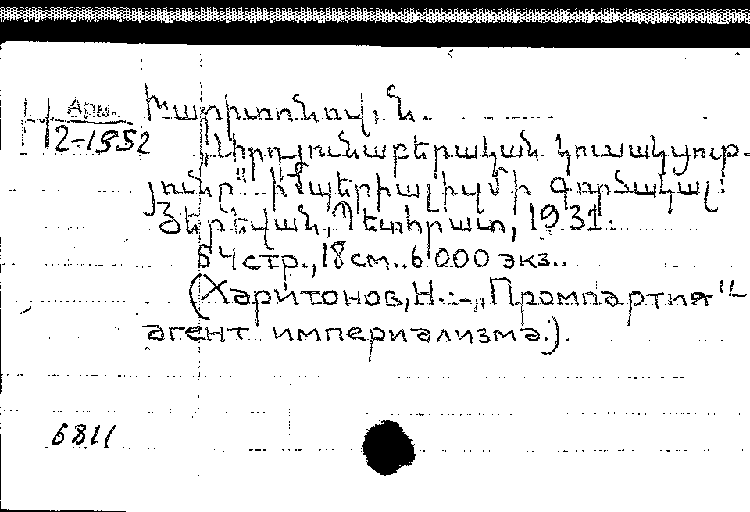 Арм.
2-1952
Խարիտոնով, Ն.
„Արդյունաբերական կուսակցութ-
յունը" իմպերիալիզմի գործակալ:
Յերեվան, Պետհրատ, 1931.
54 стр., 18 см.. 6000 экз..
(Харитонов, Н. — „Промпартия" –
агент империализма.).
6811